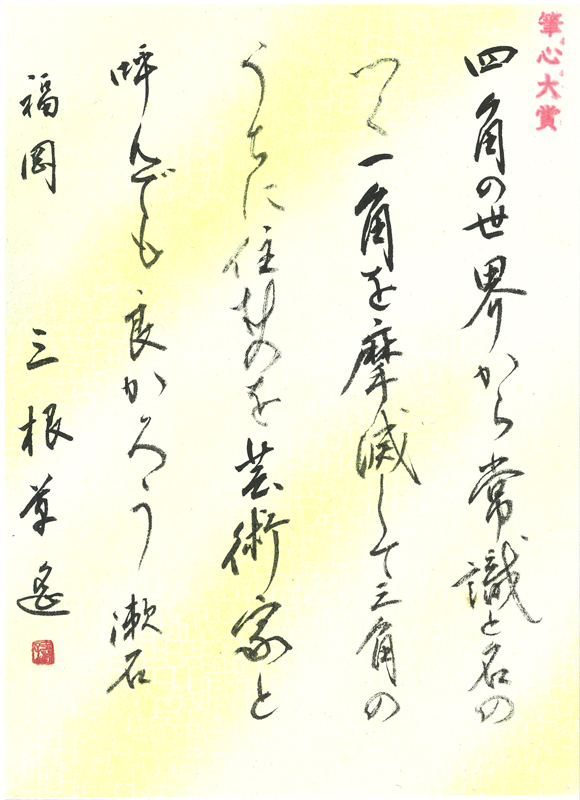 筆心大賞
四角の世界から常識と名の
つく一角を摩滅して三角の
うちに住むものを芸術家と
呼んでも良かろう 漱石
福岡 三根草遙